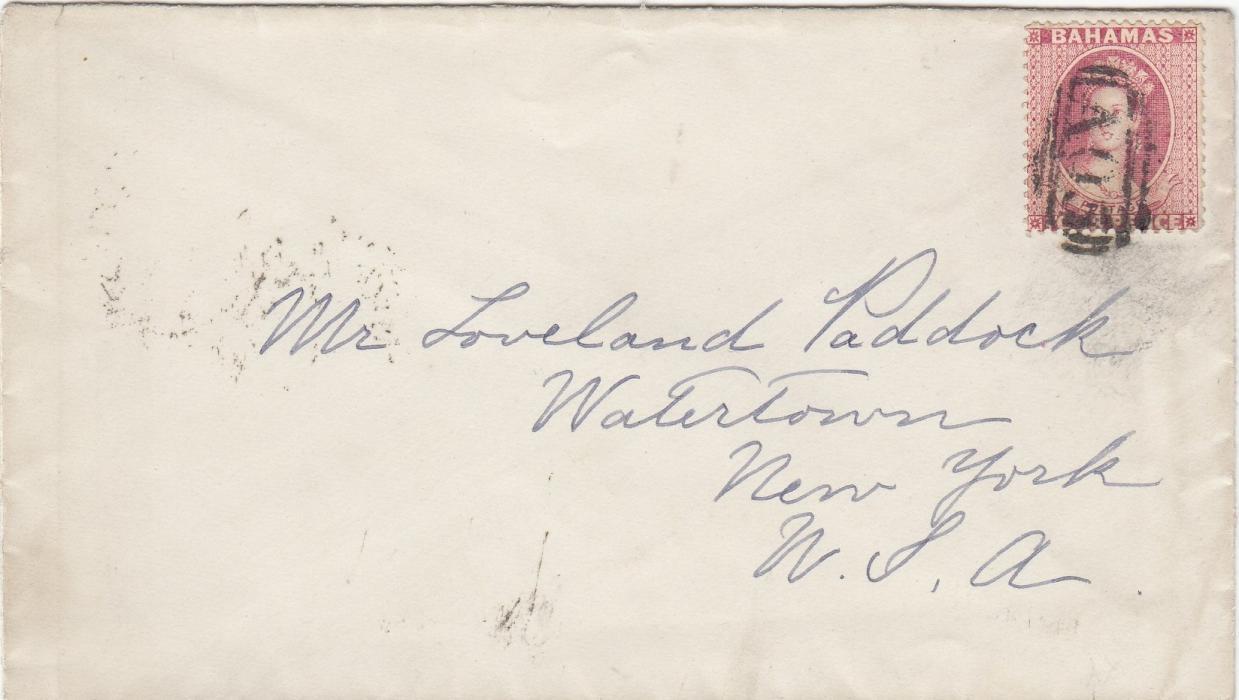 BAHAMAS
Mr Loveland Paddock
Watertown
New York
U. S. A